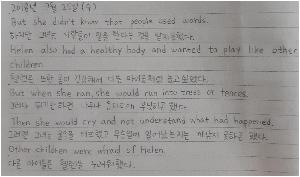 2018년 7월 25일 (수)
But she didn't know that people used words.
하지만 그녀는 사람들이 말을 한다는 것을 알지 못했다.
Helen also had a healthy body and wanted to play like other
children
헬렌은 또한 몸이 건강해서 다른 아이들처럼 놀고 싶었다.
But when she ran, she would run into trees or fences.
그러나 뛰기만 하면 나무나 울타리에 부딪히곤 했다.
Then she would cry and not understand what had happened.
그러면 그녀는 울음을 터뜨렸고 무슨일이 일어났는지는 이해하지 못하곤 했다.
Other children were afraid of Helen.
다른 아이들은 헬렌을 두려워했다.